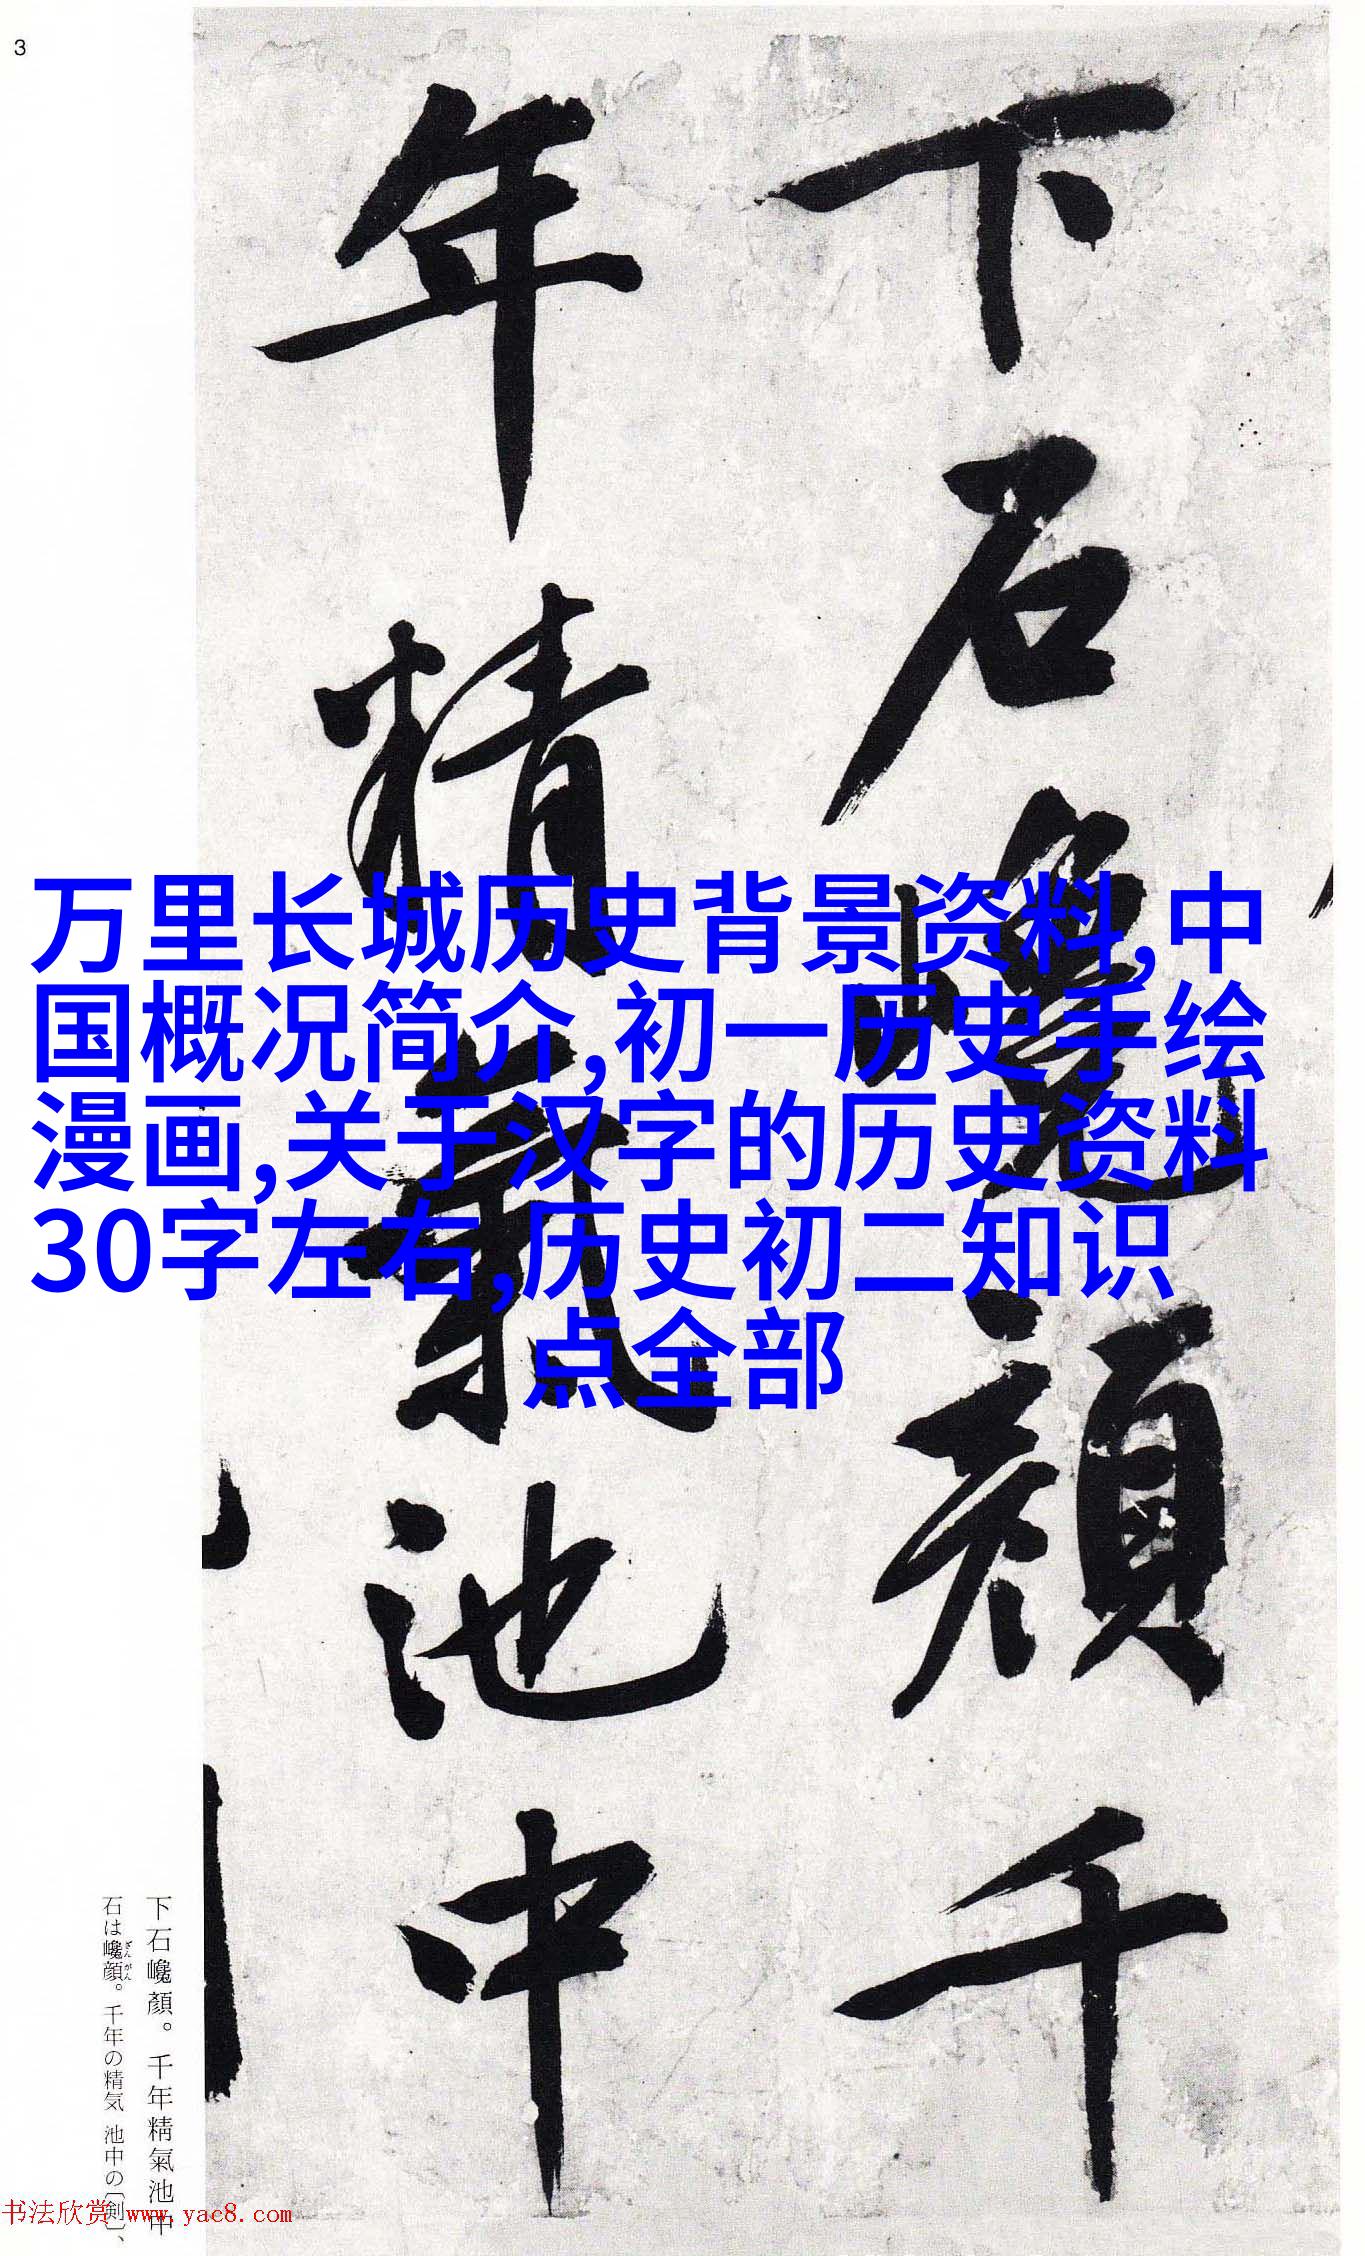 3
下石巉顔千
年精氣池中
万里长城历史背景资料,中
国概况简介,初一历史手绘
漫画,关于汉字的历史资料
30字左右,历史初二知识
点全部
下石巉顏。千年精氣池中
石は巉顔。千年の精気 池中の〔剣〕、
ざん がん
书法欣赏 www.yac8.com